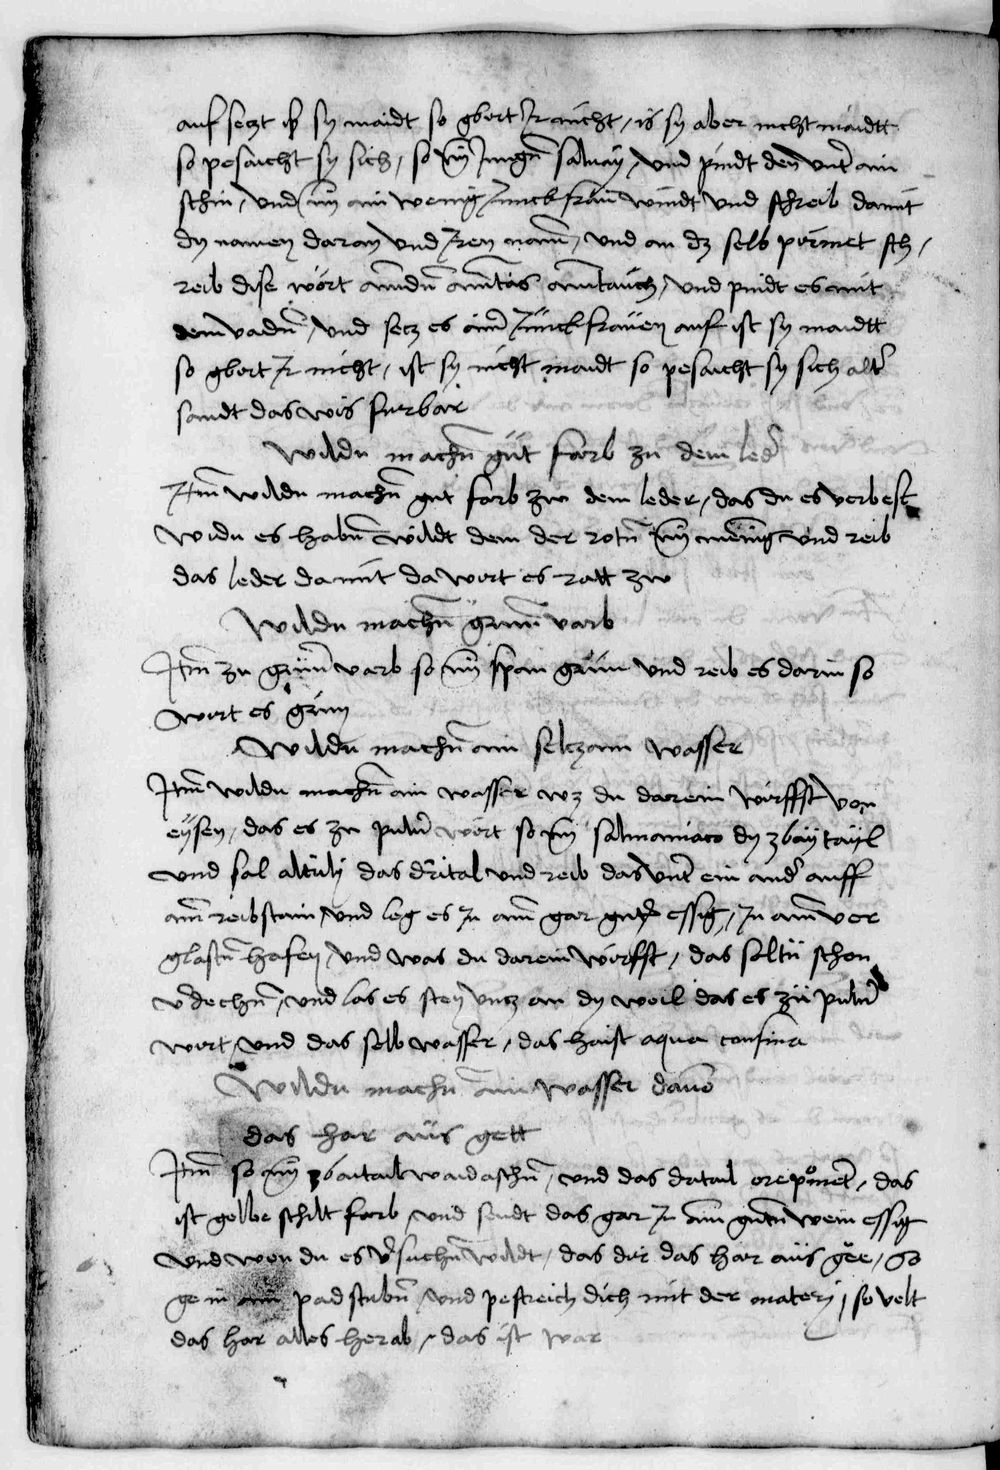 auf seczt ist sy maidt so gbort Ir nicht / is sy aber nicht maidtt
so pesaicht sy sich / so nÿm Jungn salnay / und pindt den vnter ain
schin / und nym ain wenig Junckfraun windt und schreib damit
dy namen daran und Iren nam / und an dz selb pirmet sch /
reib dise wört und pindt es mit
dem vadn / und secz es ainer Junckfrauen auf ist sy maidtt
so gbort Ir nicht / ist sy nicht maidt so pesaicht sy sich alter
sandt das wis furbar
Wildu machn güt farb zu dem leder
Item wildu machn gut farb zw dem leder / das du es verbest
widu es habn wildt dem der rotn nym mening und reib
das leder damit da wort es rott zw
Wildu machn grunn varb
Item zu grüner varb so nym span grün und reib es darin so
wirt es grün
Wildu machn ain selczam wasser
Item wildu machn ain wasser wz du darein wirffst von
eÿsen / das es zu puluer wirt so nym salmaniaco dy zbaÿ taÿl
und sal alkulj das drital und reib das vnter ein ander auff
aim reibstain und leg es In aim gar guten essig / In aim ver
glastn hafen / und was du darein wirfst / das soltu schon
verdechn / und las es sten vncz an dy weil das es zü puluer
wirt und das selb wasser / das haist aqua consina
Wildu machn ain wasser dauon
das har aüs gett
Item so nym zbaitail waidaschn / und das drital orepiment / das
ist gelbe schilt farb und seudt das gar In aim guten wein essig
und wen du es versuchn wildt / das dir das har aüs gee / so
ge in ain padstubn und pestreich dich mit der matery / so velt
das har alles herab / das ist war